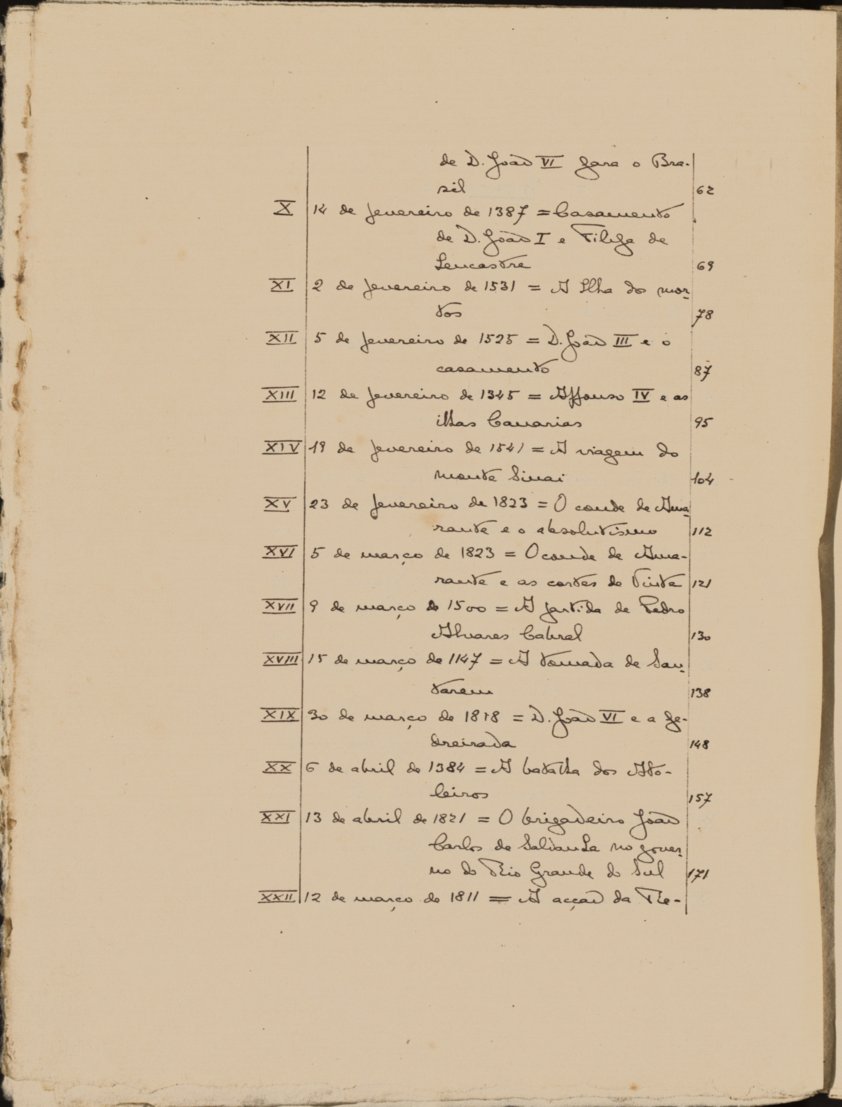 de D. João VI para o Bra-
sil 62
X 14 de fevereiro de 1387 = Casamento
de D. João I e Filipa de
Lencastre 69
XI 2 de fevereiro de 1531 = A Ilha do mor-
tos 78
XII 5 de fevereiro de 1525 = D. João III e o
casamento 87
XIII 12 de fevereiro de 1345 = Affonso IV e as
ilhas Canarias 95
XIV 19 de fevereiro de 1541 = A viagem do
monte Sinai 104
XV 23 de fevereiro de 1823 = O conde de Ama-
rante e o absolutismo 112
XVI 5 de março de 1823 = O conde de Ama-
rante e as cortes do Vinte 121
XVII 9 de março de 1500 = A partida de Pedro
Alvares Cabral 130
XVIII 15 de março de 1147 = A tomada de San-
tarem 138
XIX 30 de março de 1818 = D. João VI e a pe-
dreirada 148
XX 6 de abril de 1384 = A batalha dos Ato-
leiros 157
XXI 13 de abril de 1821 = O brigadeiro João
Carlos de Saldanha no gover-
no do Rio Grande do Sul 171
XXII 12 de março de 1811 = A acção da Re-